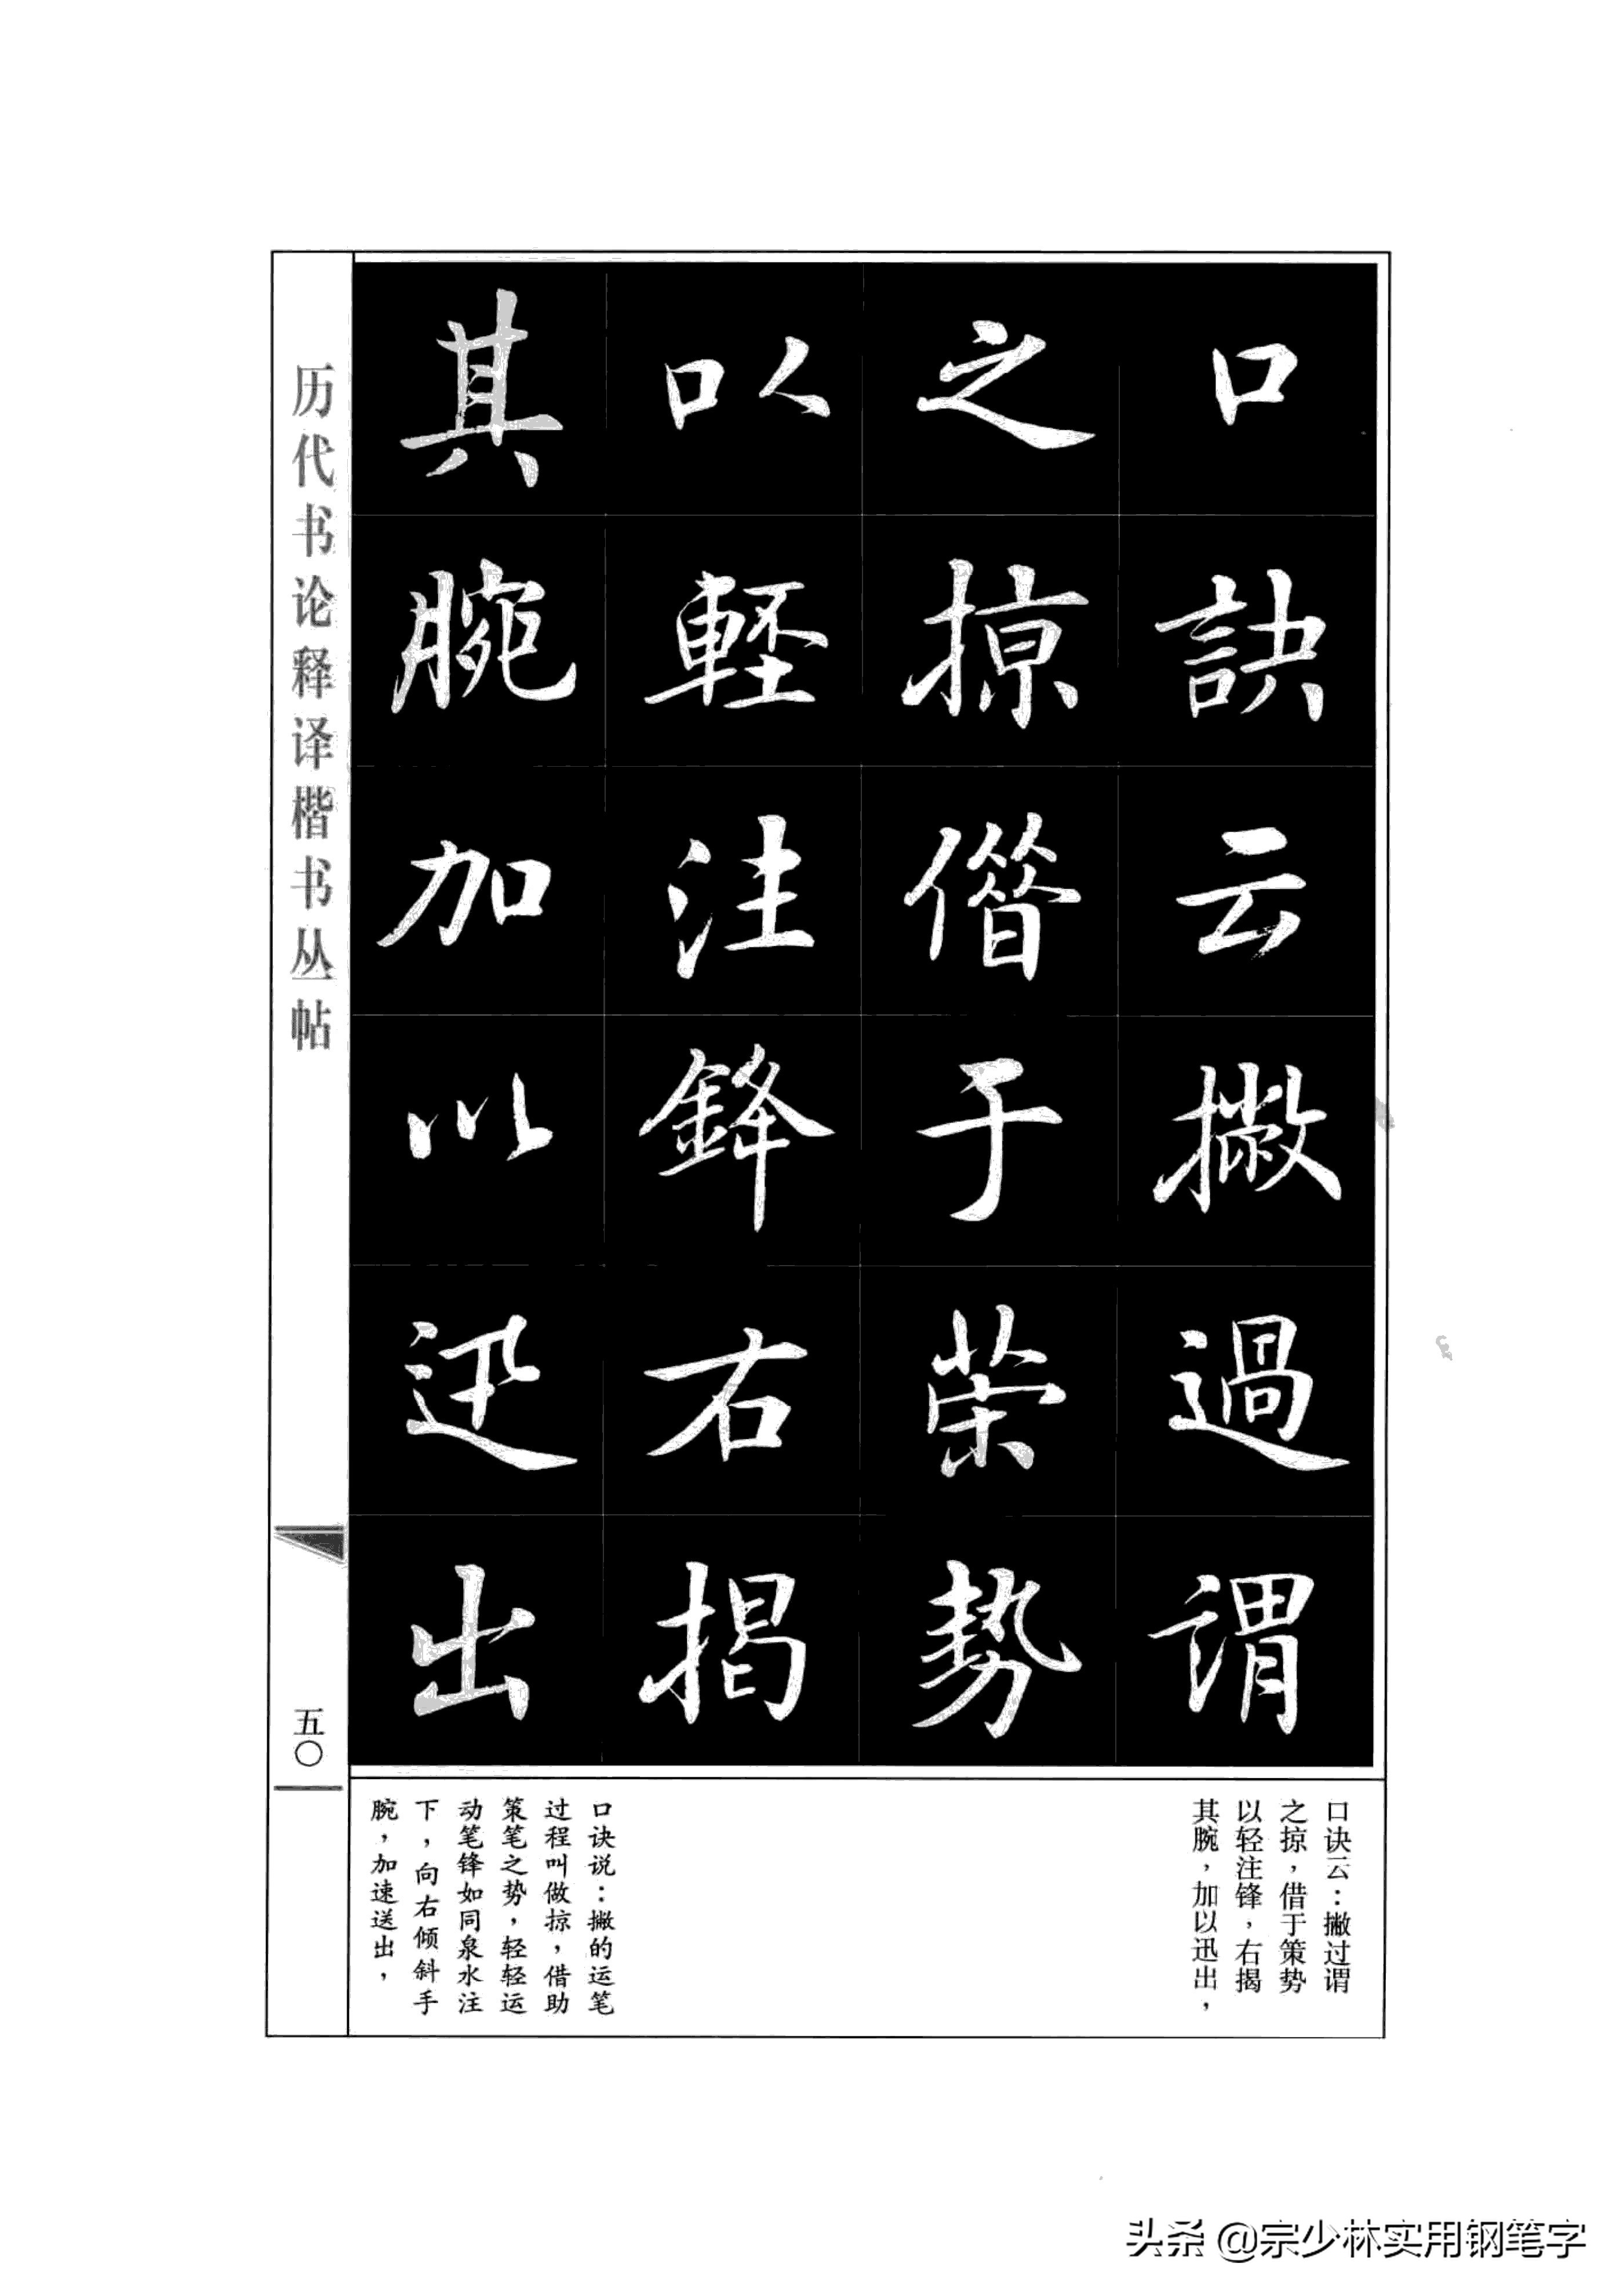 口訣云撇過謂
之掠借于策勢
以輕注鋒右揭
其腕加以迅出
历代书论释译楷书丛帖
五〇
口诀云：撇过谓
之掠，借于策势
以轻注锋，右揭
其腕，加以迅出，
口诀说：撇的运笔
过程叫做掠，借助
策笔之势，轻轻运
动笔锋如同泉水注
下，向右倾斜手
腕，加速送出，
头条 @宗少林实用钢笔字